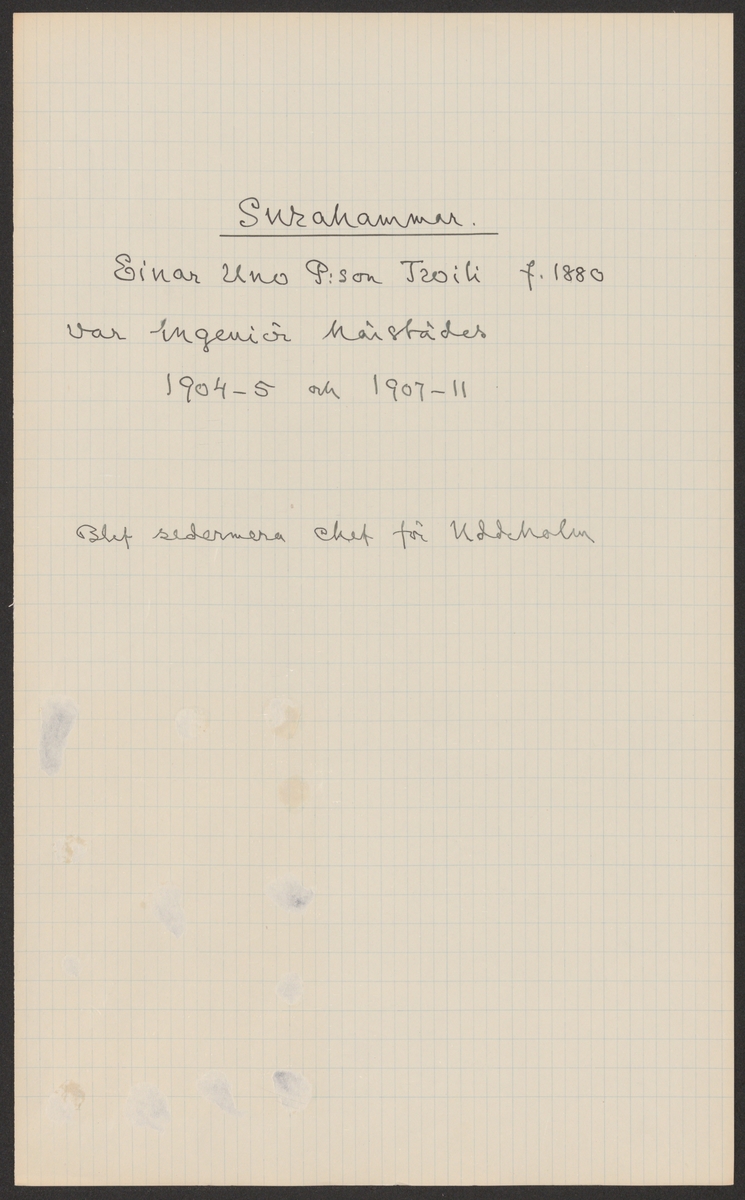 Surahammar.
Einar Uno P:son Troili f. 1880
var Ingeniör härstädes
1904-5 och 1907-11
Blef sedermera chef för Uddeholm